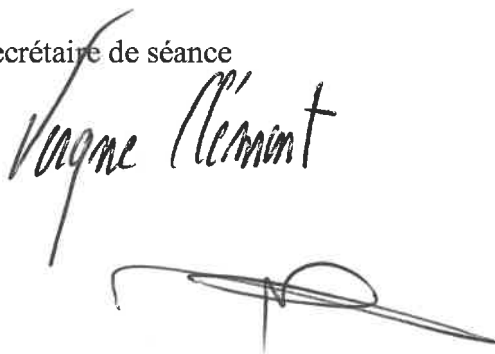 ecrétaire de séance
Vergne Clément